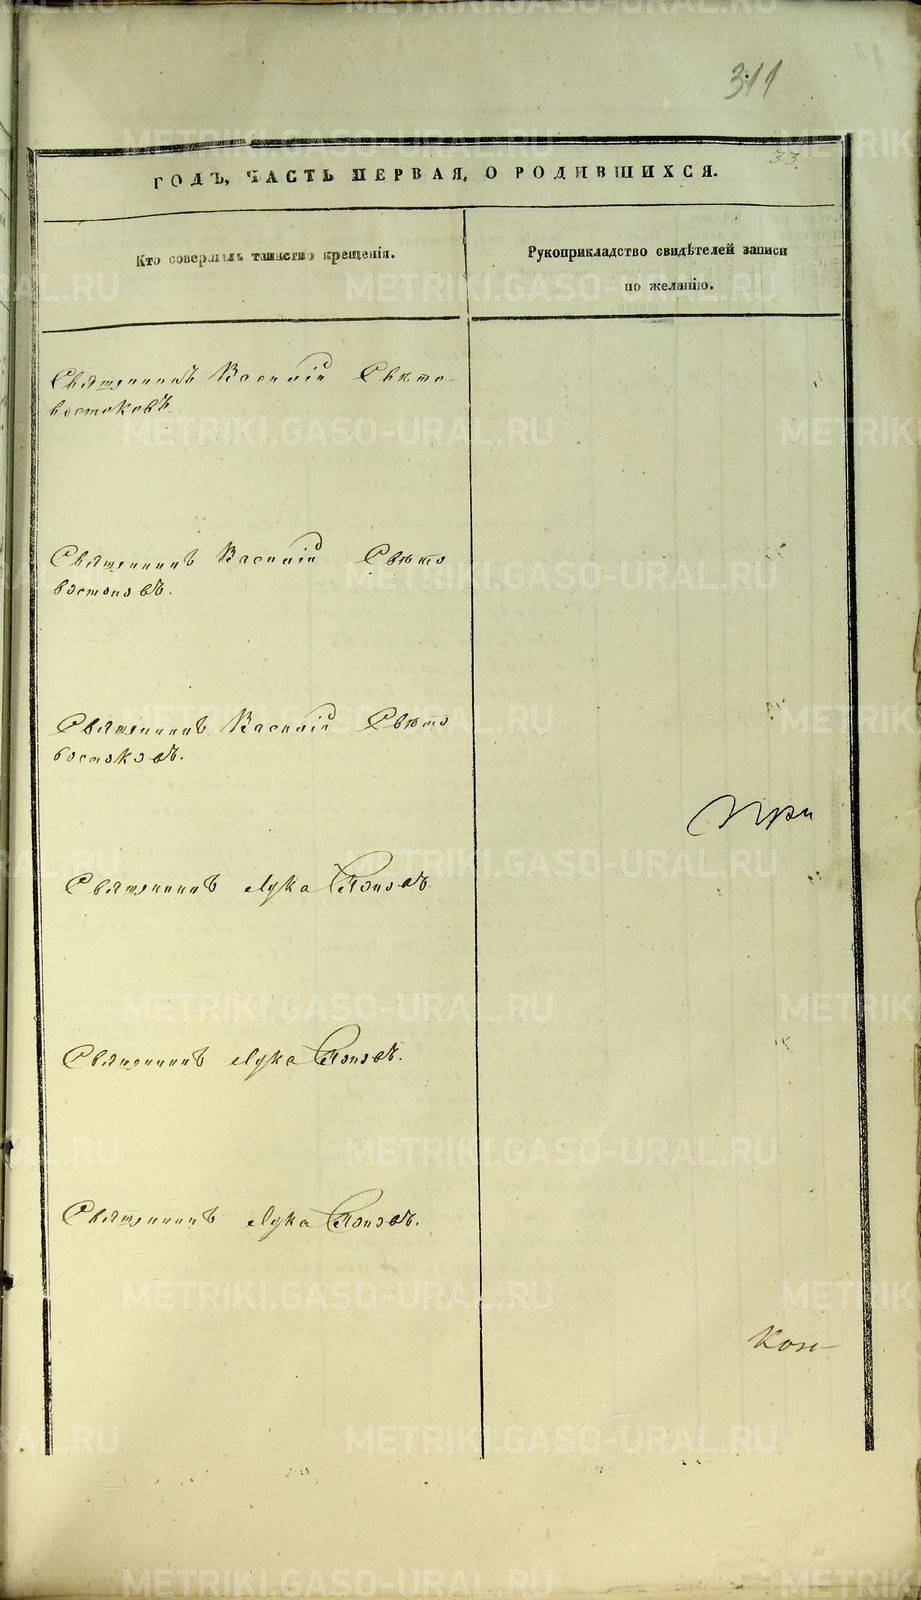 311
33
ГОДЪ, ЧАСТЬ ПЕРВАЯ, О РОДИВШИХСЯ.
Кто совершалъ таинство крещенія.
Рукоприкладство свидѣтелей записи
по желанію.
Священникъ Василій Свѣто-
востоковъ.
Священникъ Василій Свѣто
востоковъ.
Священникъ Василій Свѣто
востоковъ.
При
Священникъ Лука Поповъ.
Священникъ Лука Поповъ.
Священникъ Лука Поповъ.
METRIKI.GASO-URAL.RU